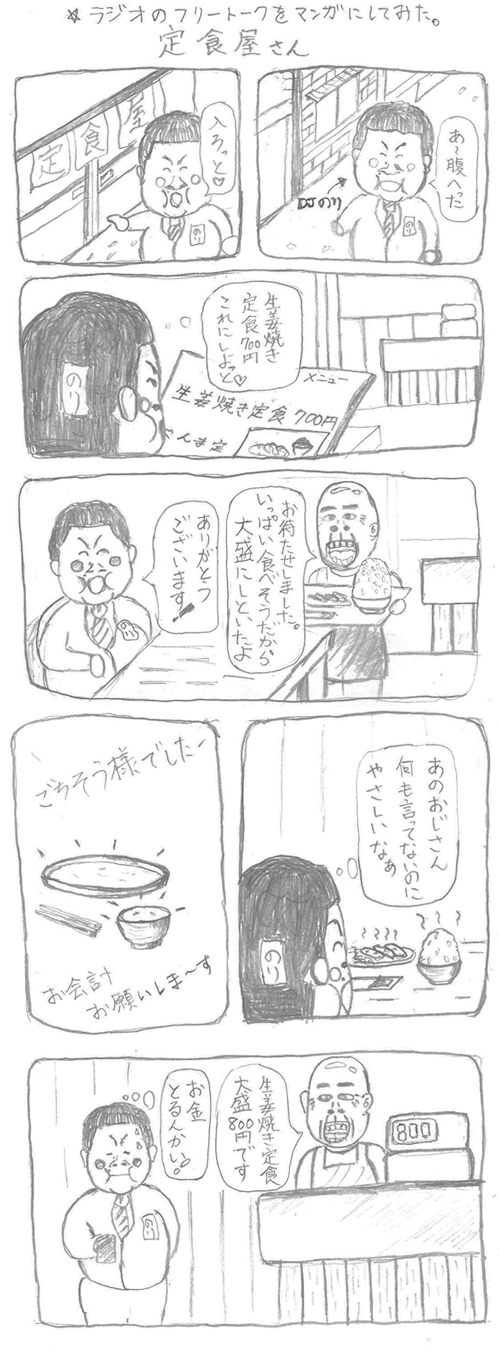 ☆ラジオのフリートークをマンガにしてみた。
定食屋さん
あ〜腹へった
DJのり
定食屋
入ろっと♡
のり
生姜焼き
定食700円
これにしよっと♡
メニュー
生姜焼き定食 700円
さんま定
のり
お待たせしました。
いっぱい食べそうだから
大盛にしといたよ
ありがとう
ございます!
のり
あのおじさん
何も言ってないのに
やさしいなぁ
のり
ごちそう様でしたー
お会計
お願いしま〜す
生姜焼き定食
大盛800円です
800
お金
とるんかい。
のり